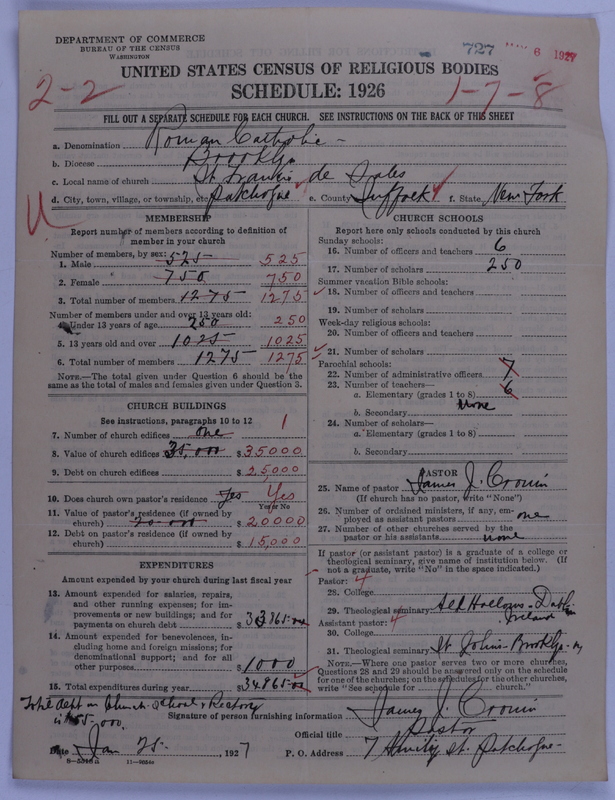 DEPARTMENT OF COMMERCE
BUREAU OF THE CENSUS
WASHINGTON
727 6 1927
UNITED STATES CENSUS OF RELIGIOUS BODIES
SCHEDULE: 1926
2-2
1-7-8
FILL OUT A SEPARATE SCHEDULE FOR EACH CHURCH. SEE INSTRUCTIONS ON THE BACK OF THIS SHEET
a. Denomination Roman Catholic
b. Diocese Brooklyn
c. Local name of church St. Francis de Sales
d. City, town, village, or township, etc. Patchogue e. County Suffolk f. State New York
MEMBERSHIP
Report number of members according to definition of member in your church
Number of members, by sex:
1. Male 525 525
2. Female 750 750
3. Total number of members 1275 1275
Number of members under and over 13 years old:
Under 13 years of age 250 250
5. 13 years old and over 1025 1025
6. Total number of members 1275 1275
NOTE.—The total given under Question 6 should be the same as the total of males and females given under Question 3.
CHURCH BUILDINGS
See instructions, paragraphs 10 to 12
7. Number of church edifices one 1
8. Value of church edifices 35,000 $ 35000
9. Debt on church edifices $ 25000
10. Does church own pastor's residence Yes Yes
Yes or No
11. Value of pastor's residence (if owned by church) 20 000 $ 20000
12. Debt on pastor's residence (if owned by church) $ 15,000
EXPENDITURES
Amount expended by your church during last fiscal year
13. Amount expended for salaries, repairs, and other running expenses; for improvements or new buildings; and for payments on church debt $ 33865.00
14. Amount expended for benevolences, including home and foreign missions; for denominational support; and for all other purposes $ 1000
15. Total expenditures during year $ 34.865.00
CHURCH SCHOOLS
Report here only schools conducted by this church
Sunday schools:
16. Number of officers and teachers 6
17. Number of scholars 250
Summer vacation Bible schools:
18. Number of officers and teachers
19. Number of scholars
Week-day religious schools:
20. Number of officers and teachers
21. Number of scholars
Parochial schools:
22. Number of administrative officers 7
23. Number of teachers—
a. Elementary (grades 1 to 8) 6
b. Secondary None
24. Number of scholars—
a. Elementary (grades 1 to 8)
b. Secondary
PASTOR
25. Name of pastor James J. Cronin
(If church has no pastor, write "None")
26. Number of ordained ministers, if any, employed as assistant pastors one
27. Number of other churches served by the pastor or his assistants none
If pastor (or assistant pastor) is a graduate of a college or theological seminary, give name of institution below. (If not a graduate, write "No" in the space indicated.)
Pastor: 4
28. College
29. Theological seminary All Hallows - Dublin Ireland
Assistant pastor: 4
30. College
31. Theological seminary St. Johns - Brooklyn - Ny
NOTE.—Where one pastor serves two or more churches, Questions 28 and 29 should be answered only on the schedule for one of the churches; on the schedules for the other churches, write "See schedule for church."
Total debt on Church School & Rectory
is 55,000.
Signature of person furnishing information James J. Cronin
Official title Pastor
Date Jan 25 1927 P. O. Address 7 St. Patchogue
11—9084